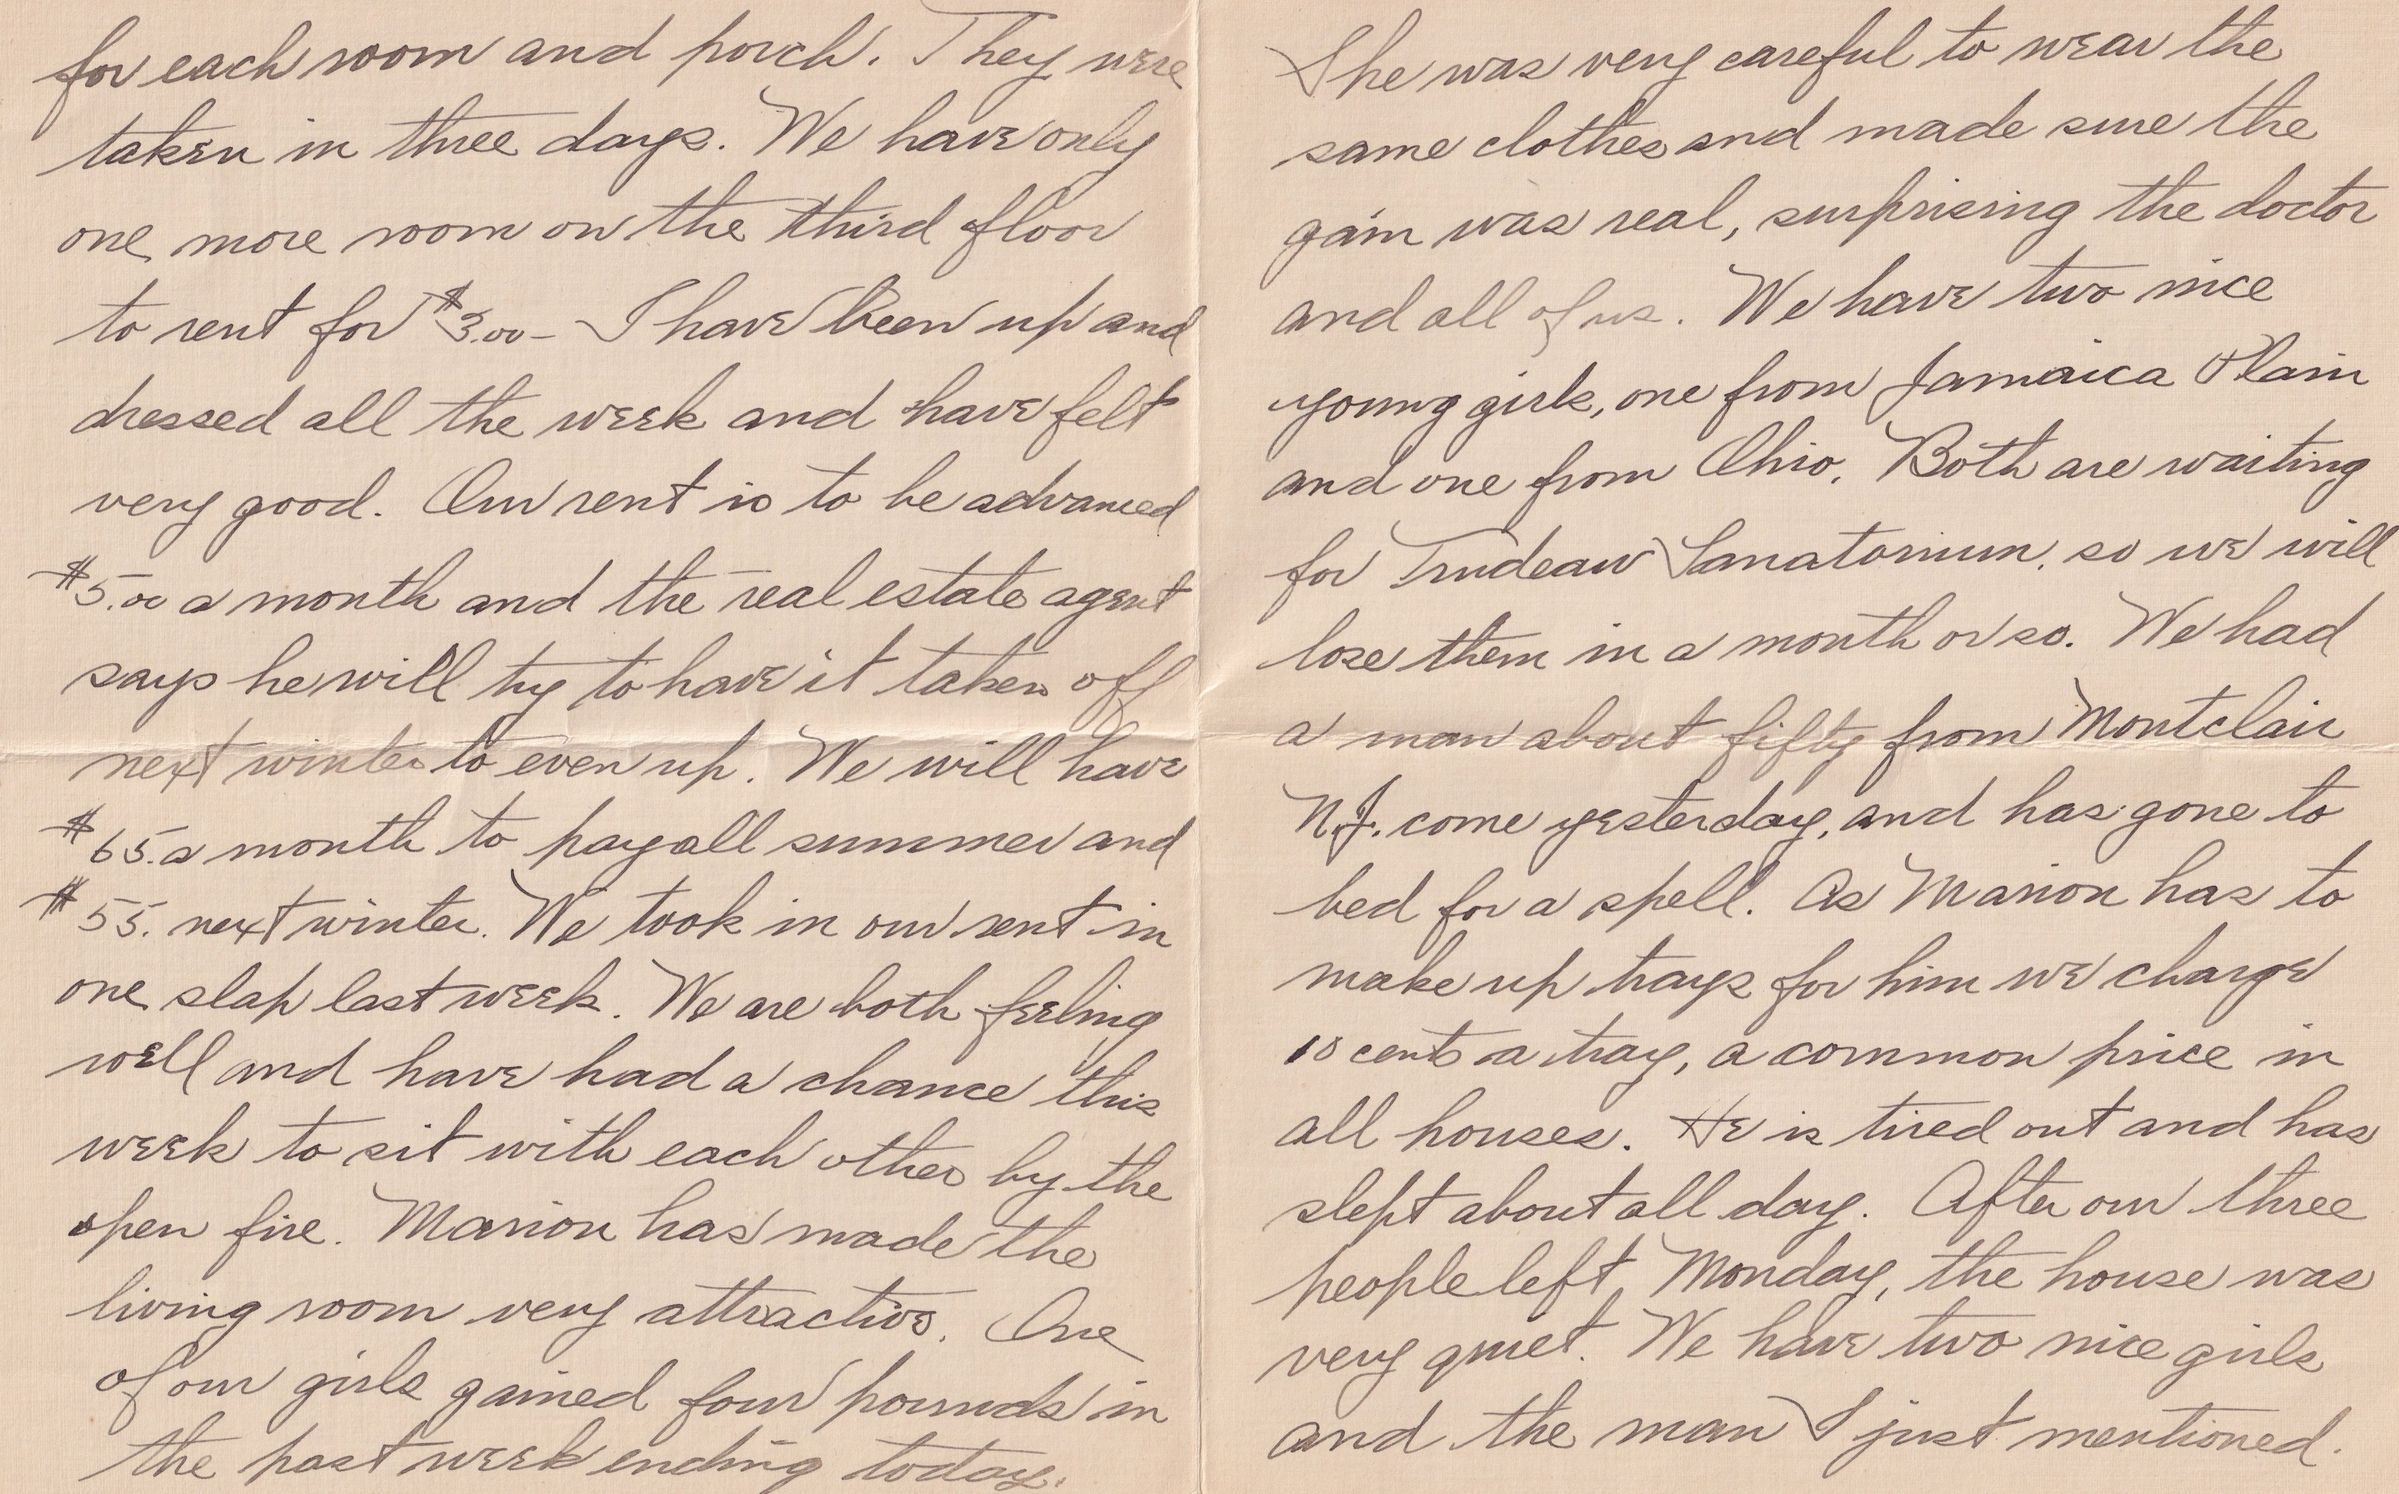 for each room and porch. They were
taken in three days. We have only
one more room on the third floor
to rent for $3.00 - I have been up and
dressed all the week and have felt
very good. Our rent is to be advanced
$5.00 a month and the real estate agent
says he will try to have it taken off
next winter to even up. We will have
$65. a month to pay all summer and
$55. next winter. We took in our rent in
one slap last week. We are both feeling
well and have had a chance this
week to sit with each other by the
open fire. Marion has made the
living room very attractive. One
of our girls gained four pounds in
the past week ending today.
She was very careful to wear the
same clothes and made sure the
gain was real, surprising the doctor
and all of us. We have two nice
young girls, one from Jamaica Plain
and one from Ohio. Both are waiting
for Trudeau Sanatorium, so we will
lose them in a month or so. We had
a man about fifty from Montclair
N.J. come yesterday, and has gone to
bed for a spell. As Marion has to
make up trays for him we charge
10 cents a tray, a common price in
all houses. He is tired out and has
slept about all day. After our three
people left, Monday, the house was
very quiet. We have two nice girls
and the man I just mentioned.